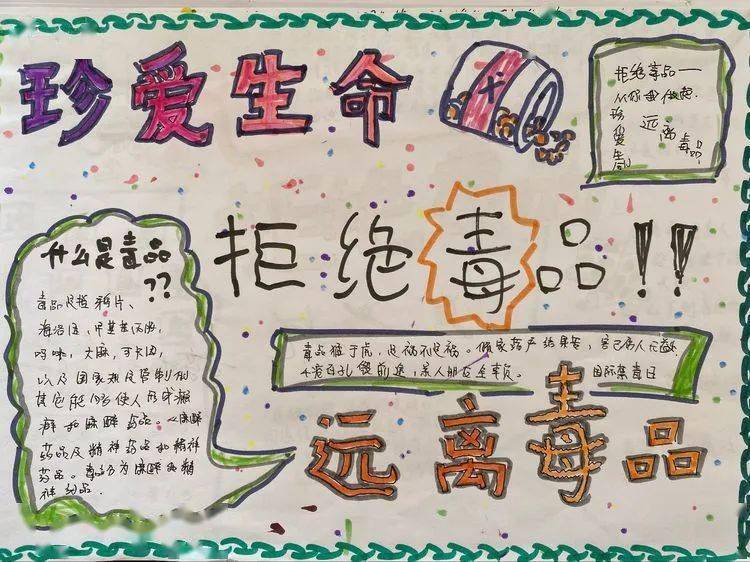 珍爱生命
拒绝毒品一
从你我做起.
珍爱生命
远离
毒品
拒绝毒品!!
什么是毒品
??
毒品是指鸦片、
海洛因,甲基苯丙胺,
吗啡,大麻,可卡因,
以及国家规定管制的
其它能够使人形成瘾
癖和麻醉药品
药品及精神药品和精神
药品。毒品分为麻醉和精
神药品.
毒品猛于虎,是祸不是福。倾家荡产结果苦,害己伤人
前途,亲人朋友
国际禁毒日
远离毒品